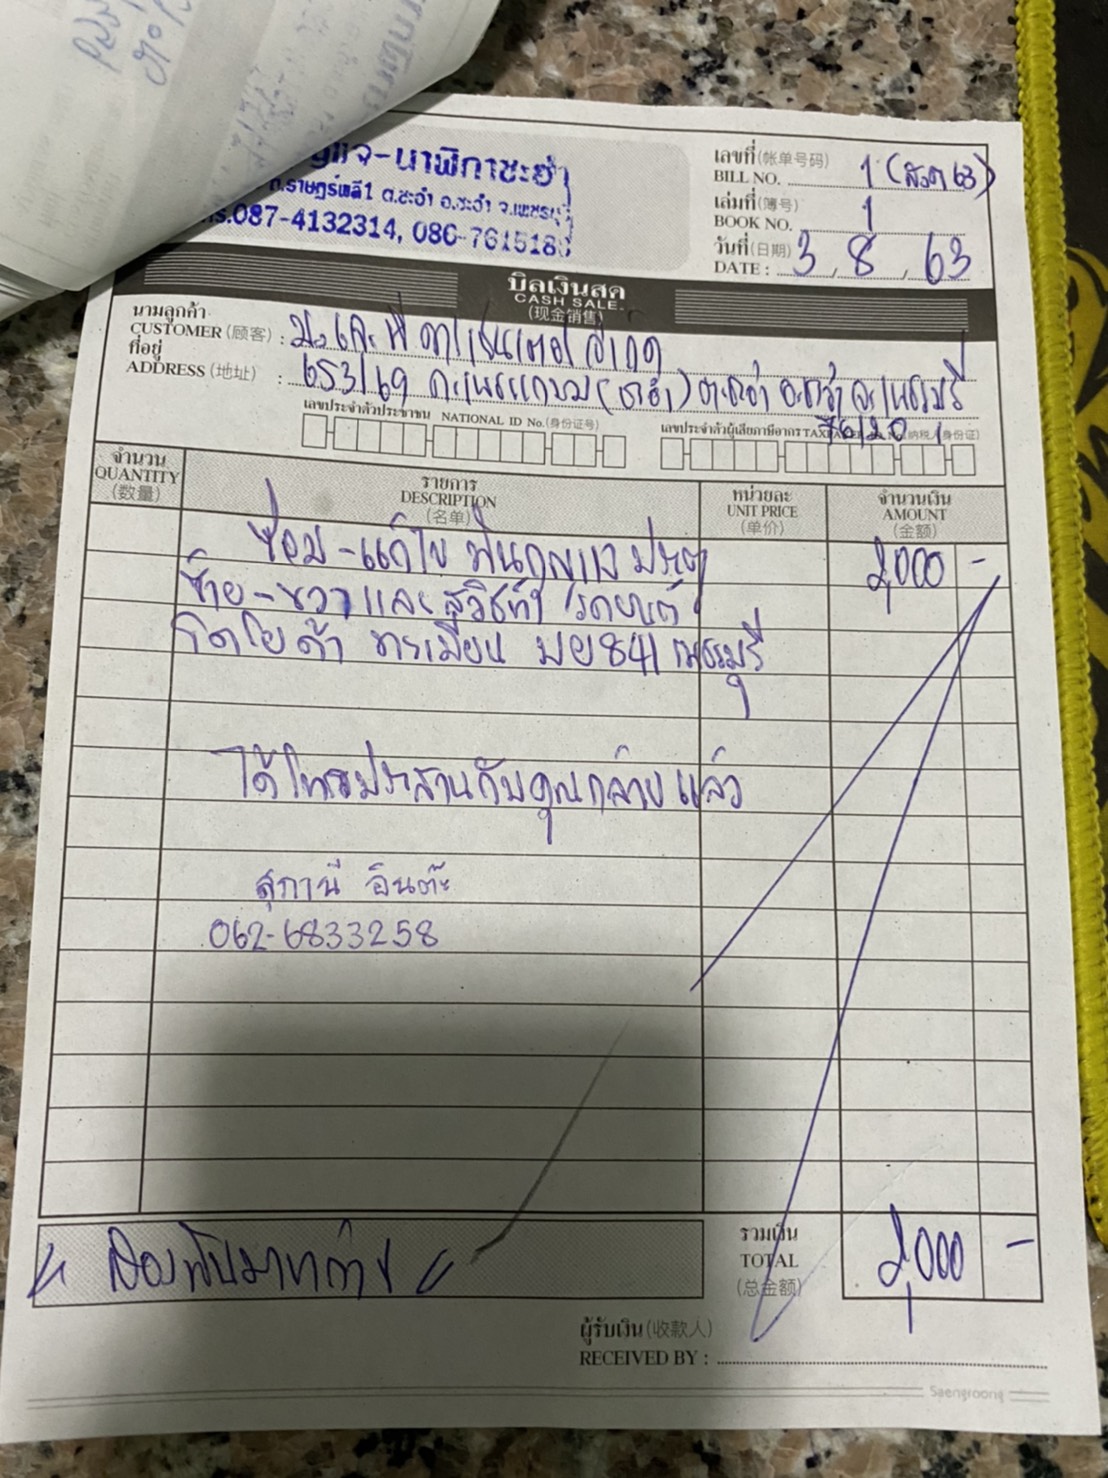 กุญแจ-นาฬิกาชะอำ
ถ.ราษฎร์พลี1 ต.ชะอำ อ.ชะอำ จ.เพชรบุรี
โทร.087-4132314, 086-7615186
เลขที่ (帐单号码)
BILL NO. 1 (สิงหา 63)
เล่มที่ (簿号)
BOOK NO. 1
วันที่ (日期)
DATE : 3, 8, 63
บิลเงินสด
CASH SALE
(现金销售)
นามลูกค้า
CUSTOMER (顾客) :
ที่อยู่
ADDRESS (地址) : 653/69 ถ.เพชรเกษม (ชะอำ) ต.ชะอำ อ.ชะอำ จ.เพชรบุรี
76120
เลขประจำตัวประชาชน NATIONAL ID No.(身份证号) เลขประจำตัวผู้เสียภาษีอากร
จำนวน รายการ หน่วยละ จำนวนเงิน
QUANTITY DESCRIPTION UNIT PRICE AMOUNT
(数量) (名单) (单价) (金额)
ซ่อม-แก้ไข ฟันกุญแจ ประตู 2,000 -
ซ้าย-ขวา และ สวิชท์ฯ รถยนต์
โตโยต้า ทะเบียน บย 841 เพชรบุรี
ได้โทรประสานกับคุณกล้วยแล้ว
สุภาณี อินต๊ะ
062-6833258
รวมเงิน
" สองพันบาทถ้วน " TOTAL 2,000 -
(总金额)
ผู้รับเงิน (收款人)
RECEIVED BY :
Saengroong